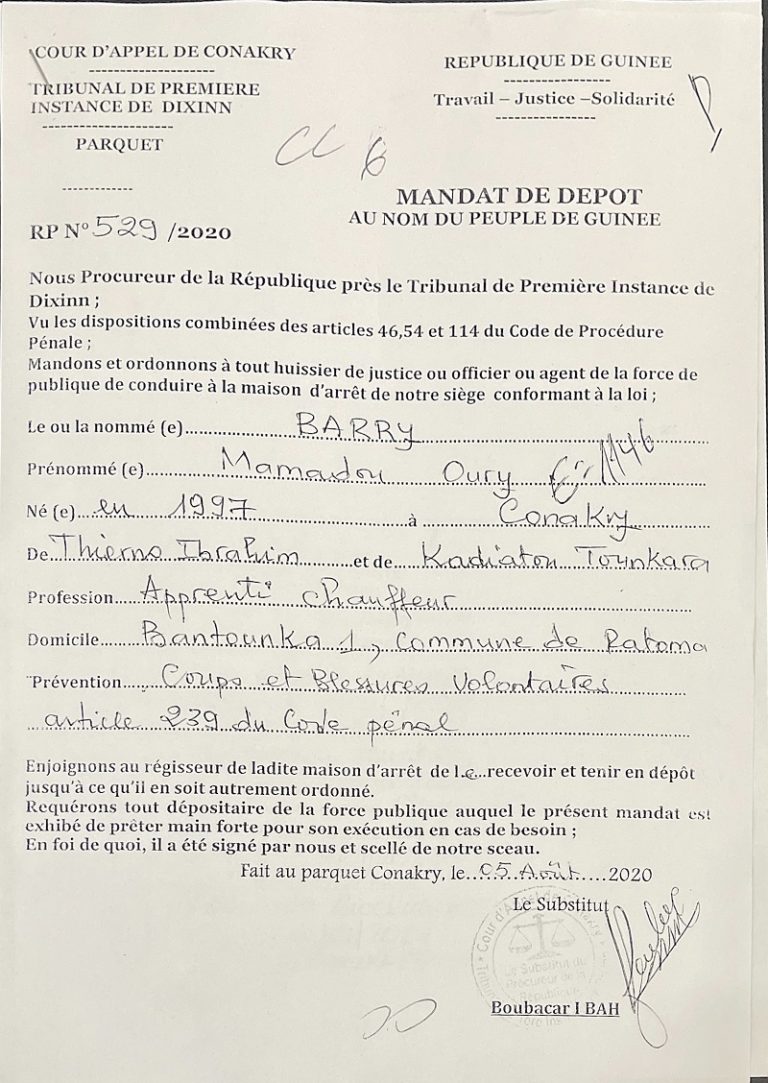 COUR D'APPEL DE CONAKRY
--------------------
TRIBUNAL DE PREMIERE
INSTANCE DE DIXINN
---------------------
PARQUET
------------
REPUBLIQUE DE GUINEE
-----------------
Travail – Justice –Solidarité
----------------
MANDAT DE DEPOT
AU NOM DU PEUPLE DE GUINEE
RP N° 529 /2020
Nous Procureur de la République près le Tribunal de Première Instance de
Dixinn ;
Vu les dispositions combinées des articles 46,54 et 114 du Code de Procédure
Pénale ;
Mandons et ordonnons à tout huissier de justice ou officier ou agent de la force de
publique de conduire à la maison d'arrêt de notre siège conformant à la loi ;
Le ou la nommé (e) BARRY
Prénommé (e) Mamadou Oury 1146
Né (e) en 1997 à Conakry
De Thierno Ibrahim et de Kadiatou Tounkara
Profession Apprenti chauffeur
Domicile Bantounka 1, Commune de Ratoma
Prévention Coups et Blessures Volontaires
article 239 du Code pénal
Enjoignons au régisseur de ladite maison d'arrêt de l.e recevoir et tenir en dépôt
jusqu'à ce qu'il en soit autrement ordonné.
Requérons tout dépositaire de la force publique auquel le présent mandat est
exhibé de prêter main forte pour son exécution en cas de besoin ;
En foi de quoi, il a été signé par nous et scellé de notre sceau.
Fait au parquet Conakry, le 05 Août 2020
Le Substitut
Cour d'Appel de
Le Substitut du
Procureur de la
République
Boubacar I BAH